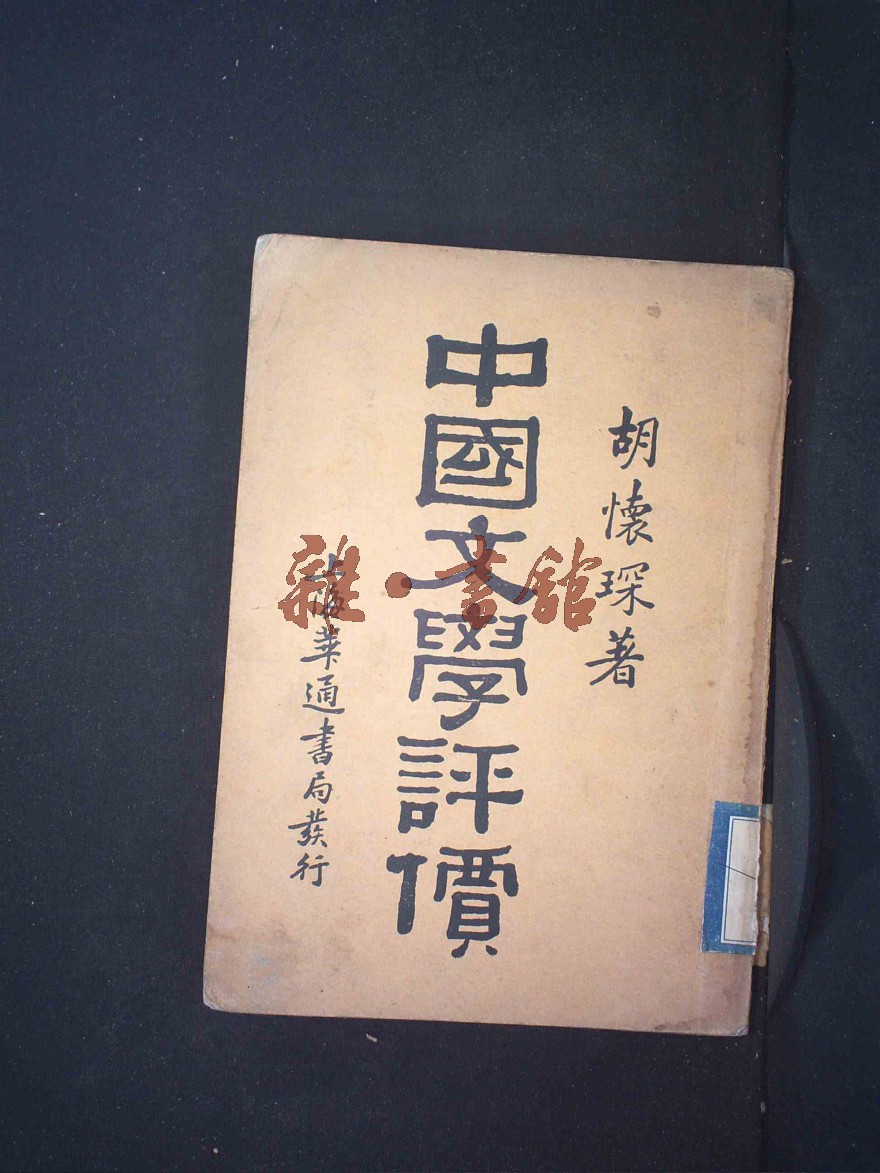 胡懷琛著
中國文學評價
上海華通書局發行
雜·書館